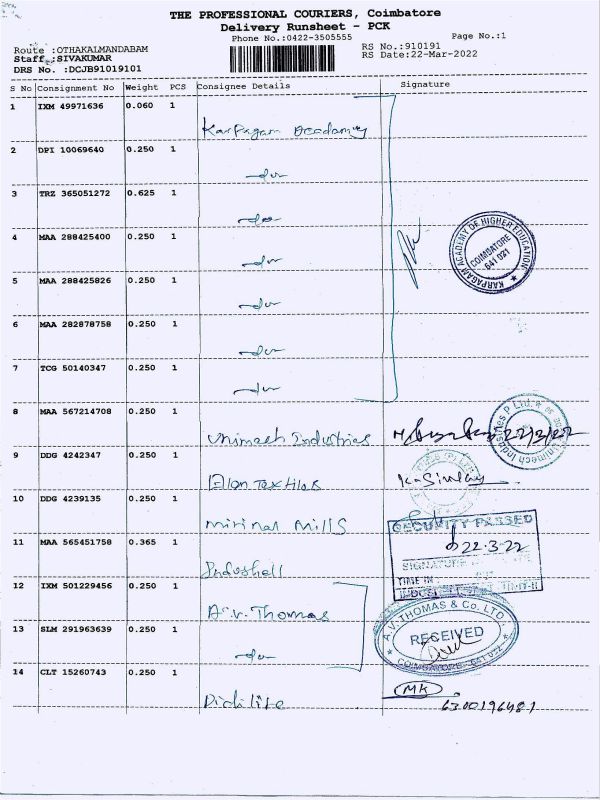 THE PROFESSIONAL COURIERS, Coimbatore
Delivery Runsheet - PCK
Phone No.:0422-3505555
Page No.:1
Route :OTHAKALMANDABAM
RS No.:910191
Staff :SIVAKUMAR
RS Date:22-Mar-2022
DRS No. :DCJB91019101
S No Consignment No Weight PCS Consignee Details Signature
1 IXM 49971636 0.060 1
Karpagam Academy
2 DPI 10069640 0.250 1
do
3 TRZ 365051272 0.625 1
do
4 MAA 288425400 0.250 1
do
KARPAGAM ACADEMY OF HIGHER EDUCATION
COIMBATORE
641 021
5 MAA 288425826 0.250 1
do
6 MAA 282878758 0.250 1
do
7 TCG 50140347 0.250 1
do
8 MAA 567214708 0.250 1
Unimech Industries 22/3/22
Unimech Industries P Ltd.
9 DDG 4242347 0.250 1
Elan Textiles
10 DDG 4239135 0.250 1
Mirinal Mills
SECURITY PASSED
11 MAA 565451758 0.365 1
22.3.22
SIGNATURE
Indoshell
TIME IN
12 IXM 501229456 0.250 1
A.V. Thomas
A.V. THOMAS & Co. LTD.
13 SLM 291963639 0.250 1
RECEIVED
do
COIMBATORE
14 CLT 15260743 0.250 1
MK
Pidilite 6300196481